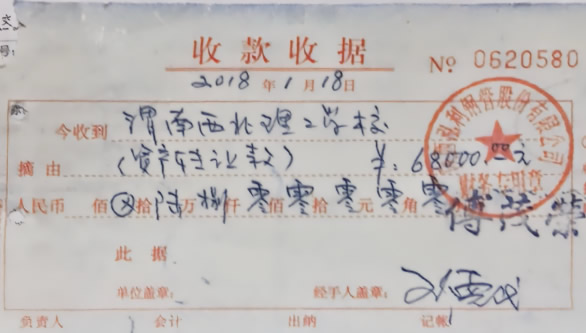 收款收据
№ 0620580
2018 年 1 月 18 日
今收到 渭南西北理工学校
摘由 (资产转让款) ¥: 68000.00元
人民币 佰 ⊗ 拾 陆 万 捌 仟 零 佰 零 拾 零 元 零 角 零
财务专用章
此据
单位盖章: 经手人盖章:
负责人 会计 出纳 记帐